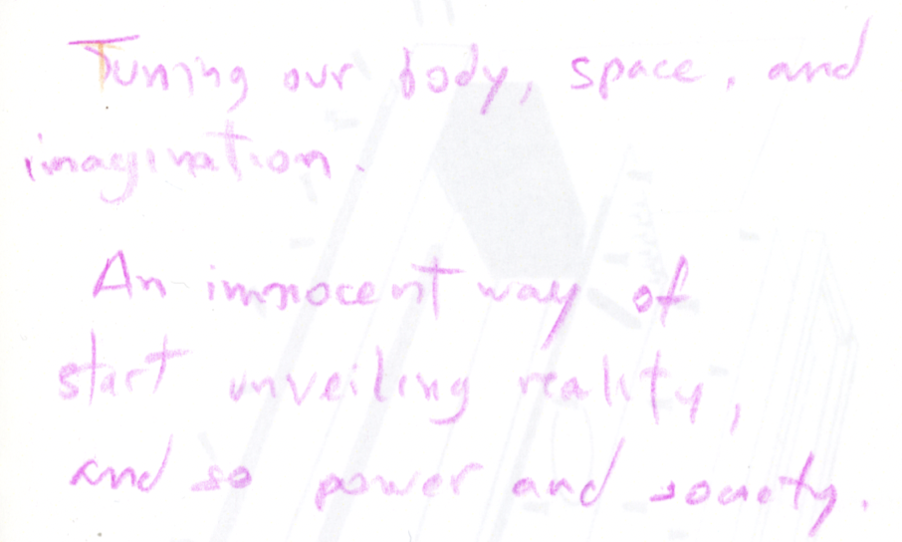 Tunning our body, space, and
imagination.
An innocent way of
start unveiling reality,
and so power and society.